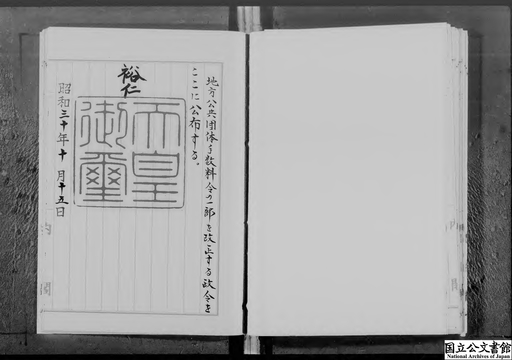 地方公共団体手数料令の一部を改正する政令を
ここに公布する。
裕仁
天皇
御璽
昭和三十年十月十五日
内閣
国立公文書館
National Archives of Japan